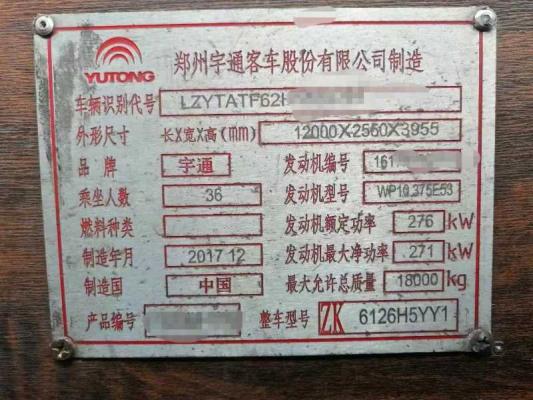 YUTONG 郑州宇通客车股份有限公司制造
车辆识别代号 LZYTATF62
外形尺寸 长X宽X高(mm) 12000X2550X3955
品牌 宇通 发动机编号 161
乘坐人数 36 发动机型号 WP10.375E53
燃料种类 发动机额定功率 276 kW
制造年月 2017 12 发动机最大净功率 271 kW
制造国 中国 最大允许总质量 18000 kg
产品编号 整车型号 ZK 6126H5YY1